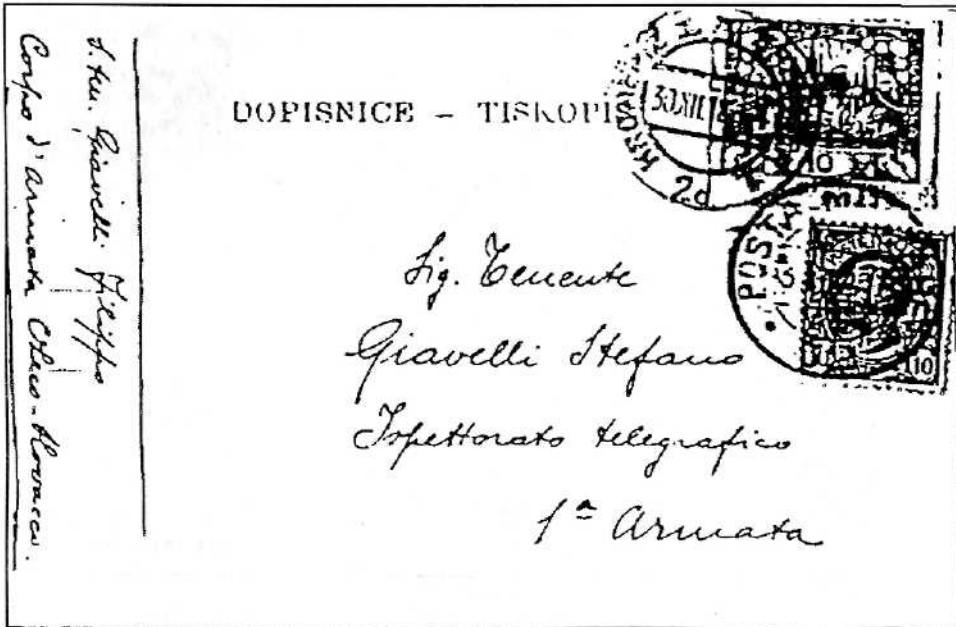 S. Ten. Giavelli Filippo
Corpo d'armata Czeco-Slovacco.
DOPISNICE – TISKOPI
30.XII.1
10
10
Sig. Tenente
Giavelli Stefano
Ispettorato telegrafico
1ª Armata